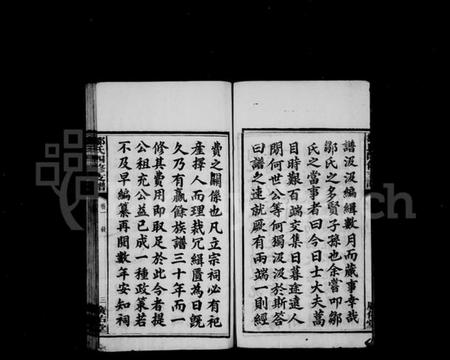 譜汲汲編緝數月而蕆事幸哉
鄒氏之多賢子孫也余嘗叩鄒
氏之當事者曰今日士大夫蒿
目時艱百端交集日暮途遠人
間何世公等何獨汲汲於斯答
曰譜之速就厥有兩端一則經
費之關係也凡立宗祠必有祀
產擇人而理裁冗緝匱為日旣
久乃有贏餘族譜三十年而一
修其費用即取足於此今者提
公租充公益已成一種政策若
不及早編纂再閱數年安知祠